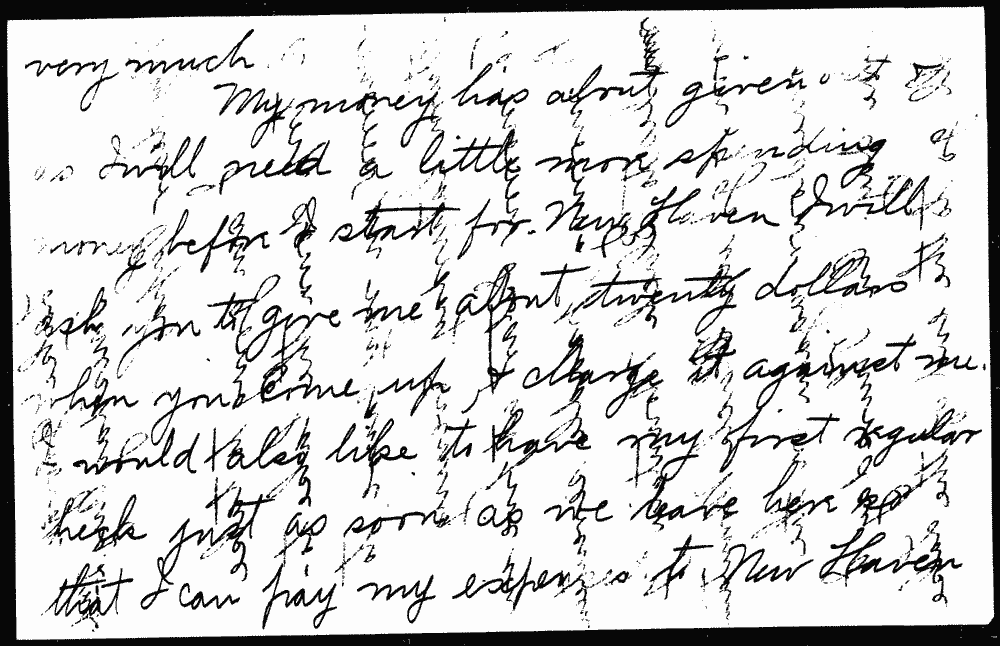 very much
My money has about given out &
as I will need a little more spending
money before I start for New Haven I will
ask you to give me about twenty dollars
when you come up, & charge it against me.
I would also like to have my first regular
check just as soon as we leave here so
that I can pay my expenses to New Haven